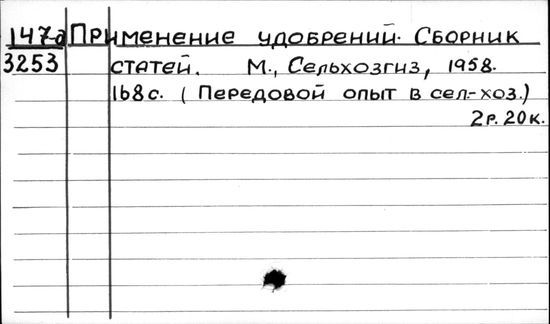 147-а Применение удобрений. Сборник
3253 статей. М., Сельхозгиз, 1958.
168с. (Передовой опыт в сел-хоз.)
2р. 20к.